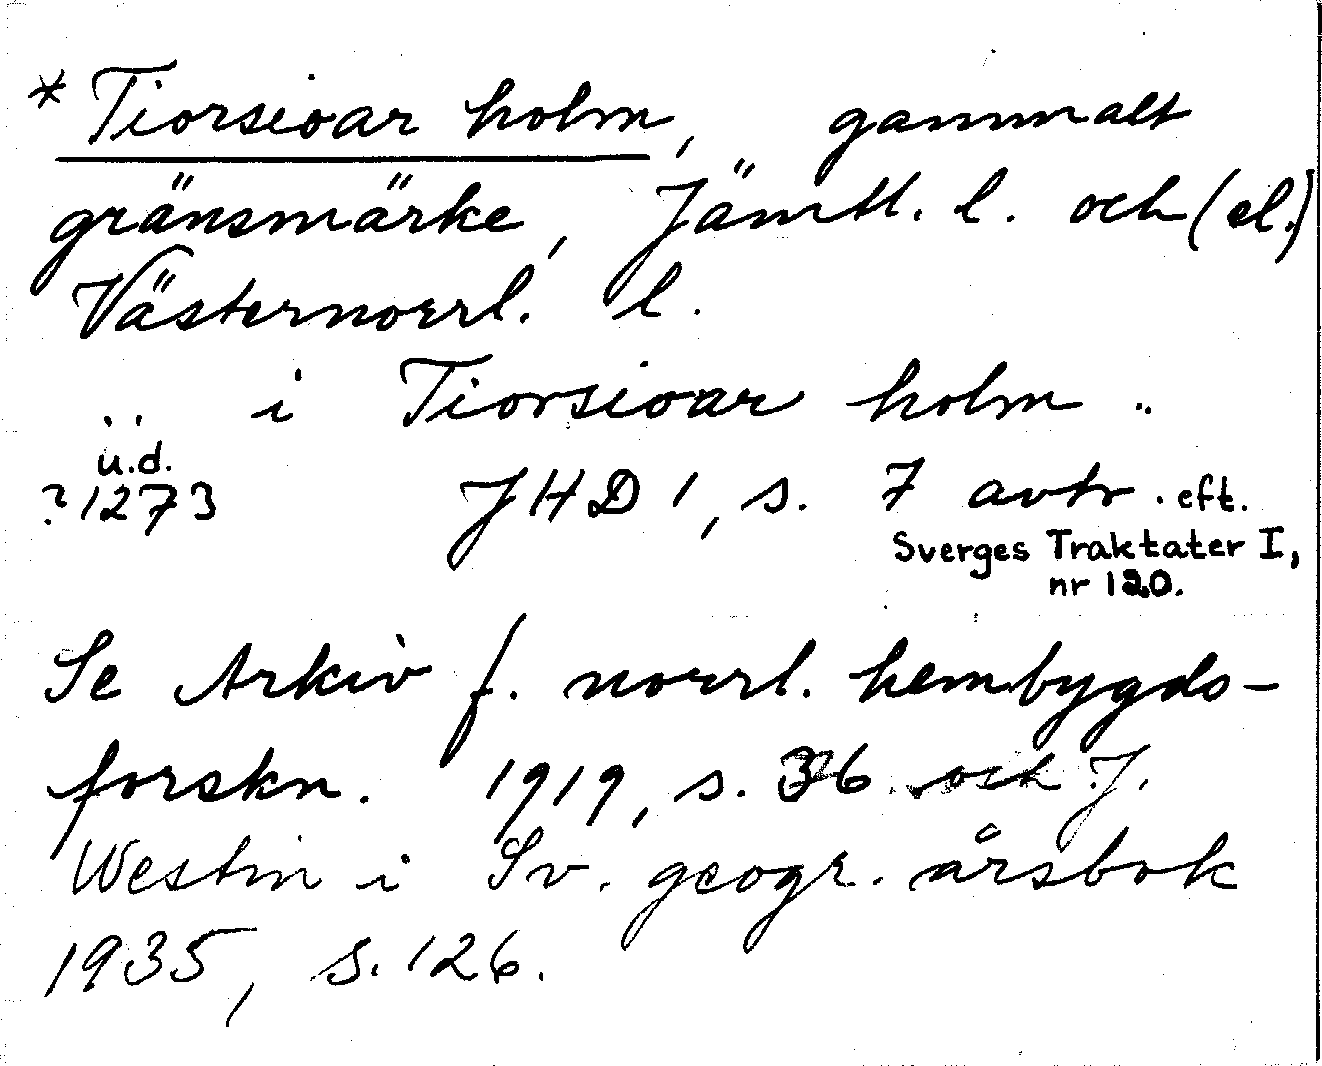 * Tiorsioar holm, gammalt
gränsmärke, Jämtl. l. och (el.)
Västernorrl. l.
.. i Tiorsioar holm ..
u.d.
?1273 JHD 1, s. 7 avtr. eft.
Sverges Traktater I,
nr 120.
Se Arkiv f. norrl. hembygds-
forskn. 1919, s. 36 och J.
Westin i Sv. geogr. årsbok
1935, s. 126.